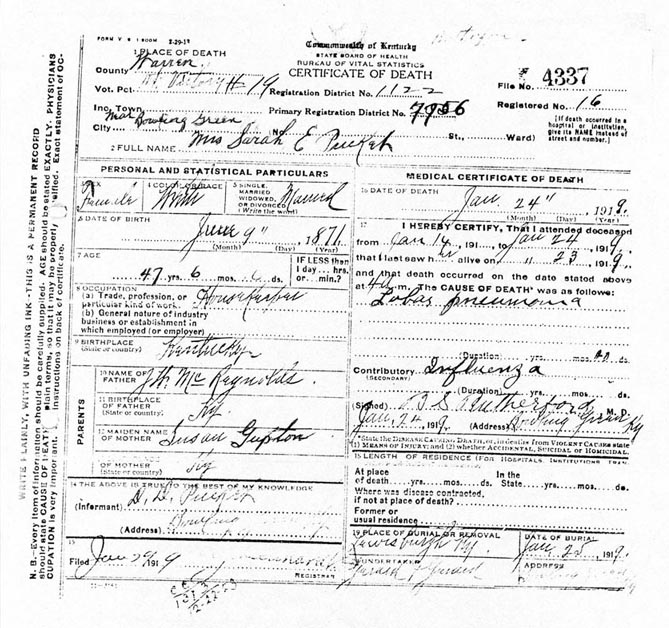 FORM V S 1 500M 8-29-19
Commonwealth of Kentucky
STATE BOARD OF HEALTH
BUREAU OF VITAL STATISTICS
CERTIFICATE OF DEATH
1 PLACE OF DEATH
County Warren
Vot. Pct. # 19
Registration District No. 1122
File No. 4337
Inc. Town near Bowling Green
Primary Registration District No. 7956
Registered No. 16
City No. St., Ward)
[If death occurred in a hospital or institution, give its NAME instead of street and number.]
2 FULL NAME Mrs Sarah E Pucket
PERSONAL AND STATISTICAL PARTICULARS
3 SEX Female
4 COLOR OR RACE White
5 SINGLE, MARRIED WIDOWED, OR DIVORCED (Write the word) Married
6 DATE OF BIRTH June 9" 1871
(Month) (Day) (Year)
7 AGE 47 yrs. 6 mos. ds.
IF LESS than 1 day.... hrs. or.... min.?
8 OCCUPATION
(a) Trade, profession, or particular kind of work. Housekeeper
(b) General nature of industry business or establishment in which employed (or employer)
9 BIRTHPLACE (State or country) Kentucky
PARENTS
10 NAME OF FATHER J.H. McReynolds.
11 BIRTHPLACE OF FATHER (State or country) Ky
12 MAIDEN NAME OF MOTHER Susan Gupton
OF MOTHER (State or country) Ky
14 THE ABOVE IS TRUE TO THE BEST OF MY KNOWLEDGE
(Informant)
(Address) Bowling
15
Filed Jan 29 1919
REGISTRAR
MEDICAL CERTIFICATE OF DEATH
16 DATE OF DEATH Jan. 24" 1919.
(Month) (Day) (Year)
17 I HEREBY CERTIFY, That I attended deceased
from Jan 14, 191...., to Jan 24, 1919.
that I last saw her alive on " 23, 1919.
and that death occurred on the date stated above
at m. The CAUSE OF DEATH* was as follows:
Lobar pneumonia
(Duration) yrs. mos. ds.
Contributory Influenza
(SECONDARY)
(Duration) yrs. mos. ds.
(Signed) M. D.
Jan, 24, 1919. (Address) Bowling Green Ky
*State the DISEASE CAUSING DEATH, or, in deaths from VIOLENT CAUSES state (1) MEANS OF INJURY; and (2) whether ACCIDENTAL, SUICIDAL or HOMICIDAL.
18 LENGTH OF RESIDENCE (FOR HOSPITALS, INSTITUTIONS
At place of death yrs. mos. ds.
In the State yrs. mos. ds.
Where was disease contracted, if not at place of death?
Former or usual residence
19 PLACE OF BURIAL OR REMOVAL Lewisburgh Ky.
DATE OF BURIAL Jan, 25, 1919.
UNDERTAKER
ADDRESS
N. B.—Every item of information should be carefully supplied. AGE should be stated EXACTLY. PHYSICIANS should state CAUSE OF DEATH in plain terms, so that it may be properly classified. Exact statement of OCCUPATION is very important. Instructions on back of certificate.
WRITE PLAINLY, WITH UNFADING INK-THIS IS A PERMANENT RECORD